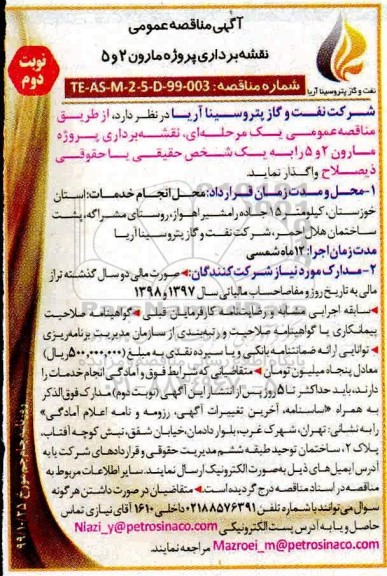 آگهی مناقصه عمومی
نقشه‌برداری پروژه مارون ۲ و ۵
نوبت
دوم
نفت و گاز پتروسینا آریا
شماره مناقصه: TE-AS-M-2-5-D-99-003
شرکت نفت و گاز پتروسینا آریا در نظر دارد، از طریق
مناقصه عمومی یک مرحله‌ای، نقشه‌برداری پروژه
مارون ۲ و ۵ را به یک شخص حقیقی یا حقوقی
ذیصلاح واگذار نماید.
۱- محل و مدت زمان قرارداد: محل انجام خدمات: استان
خوزستان، کیلومتر ۱۵ جاده رامشیر اهواز، روستای مشراگه، پشت
ساختمان هلال احمر، شرکت نفت و گاز پتروسینا آریا
مدت زمان اجرا: ۱۲ ماه شمسی
۲- مدارک مورد نیاز شرکت‌کنندگان: صورت مالی دو سال گذشته تراز
مالی به تاریخ روز و مفاصاحساب مالیاتی سال ۱۳۹۷ و ۱۳۹۸
سابقه اجرایی مشابه و رضایت‌نامه کارفرمایان قبل گواهینامه صلاحیت
پیمانکاری یا گواهینامه صلاحیت و رتبه‌بندی از سازمان مدیریت برنامه‌ریزی
توانایی ارائه ضمانتنامه بانکی و یا سپرده نقدی به مبلغ (۵۰۰,۰۰۰,۰۰۰ ریال)
معادل پنجاه میلیون تومان متقاضیانی که شرایط فوق و آمادگی انجام خدمات را
دارند، باید حداکثر تا ۵ روز پس از انتشار این آگهی (نوبت دوم) مدارک فوق‌الذکر
به همراه «اساسنامه، آخرین تغییرات آگهی، رزومه و نامه اعلام آمادگی»
را به نشانی: تهران، شهرک غرب، بلوار دادمان، خیابان شفق، نبش کوچه آفتاب،
پلاک ۲، ساختمان توحید طبقه ششم مدیریت حقوقی و قراردادهای شرکت یا به
آدرس ایمیل‌های ذیل به‌صورت الکترونیک ارسال نمایند. سایر اطلاعات مربوط به
مناقصه در اسناد مناقصه درج گردیده است. متقاضیان در صورت داشتن هرگونه
سوال می‌توانند با شماره تلفن ۰۲۱۸۸۵۷۶۳۹۱ داخلی ۱۶۱۰ آقای نیازی تماس
حاصل و یا به آدرس پست الکترونیکی Niazi_y@petrosinaco.com
Mazroei_m@petrosinaco.com مراجعه نمایند.